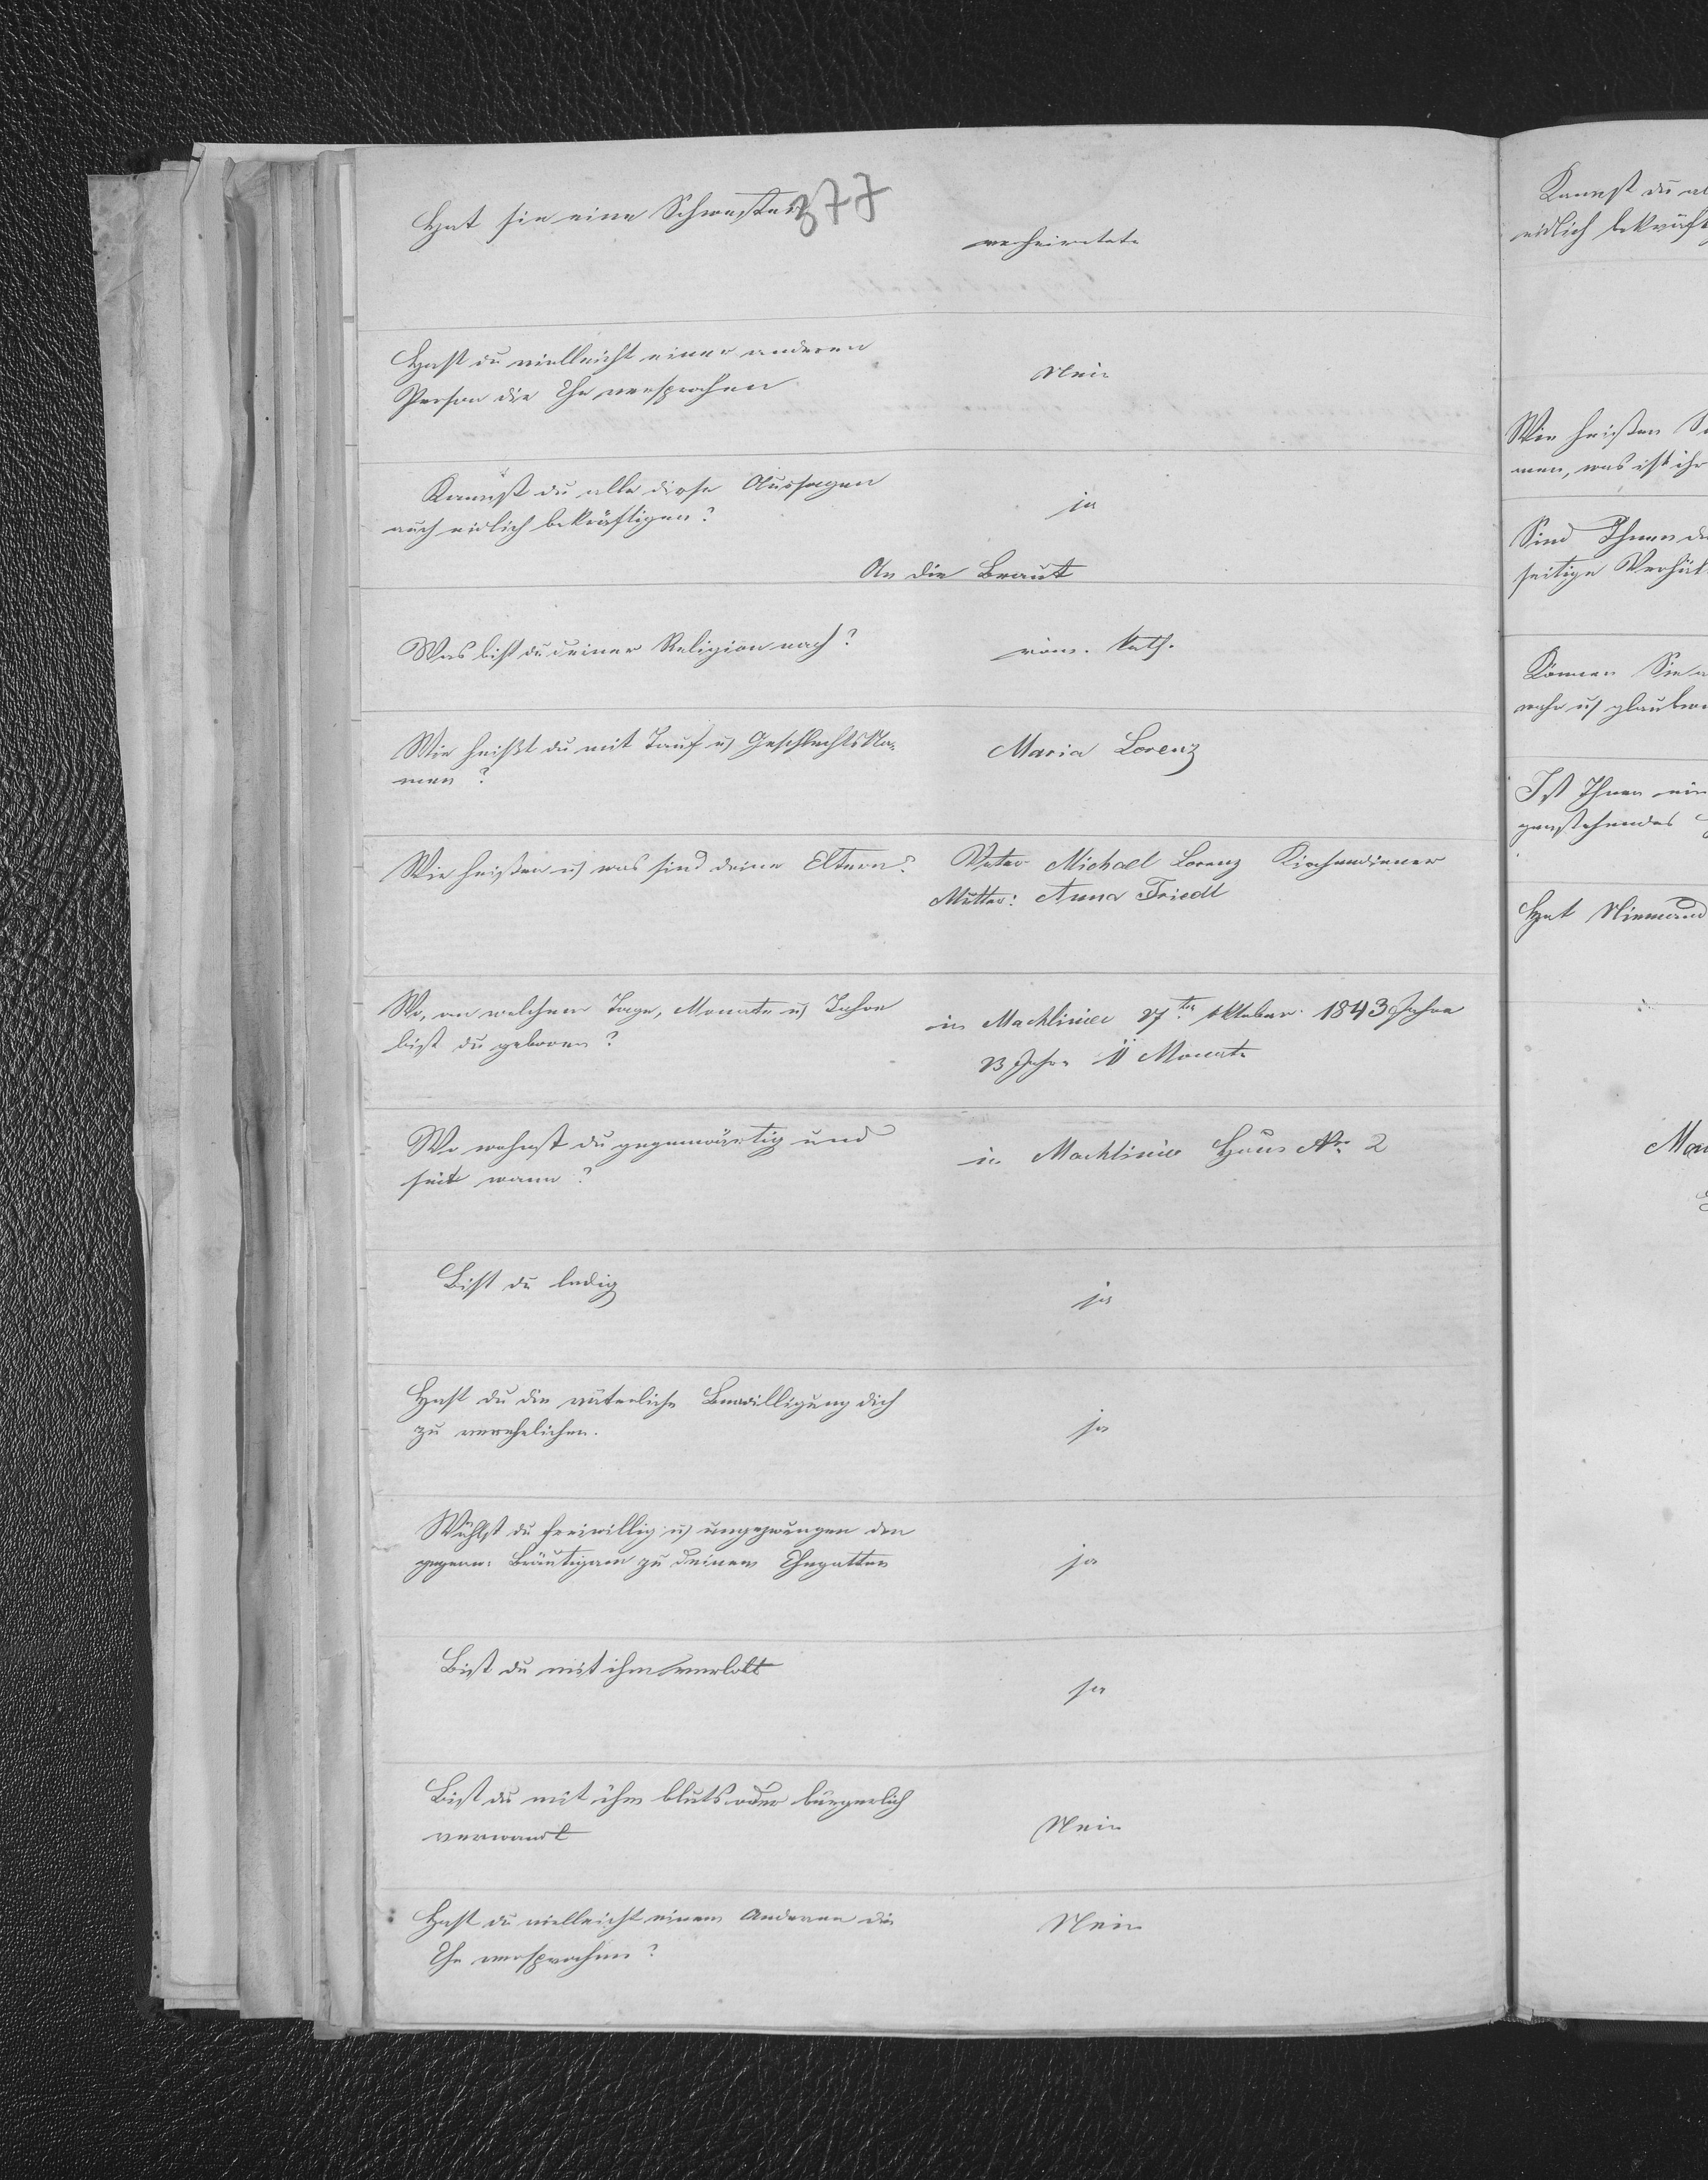 377
Hat sie eine Schwester
verheiratete
Hast du vielleicht einer anderen
Person die Ehe versprochen
Nein
Kannst du alle diese Aussagen
auch eidlich bekräftigen?
ja
An die Braut
Was bist du deiner Religion nach?
röm. kath.
Wie heißt du mit Tauf u Geschlechtsna-
men?
Maria Lorenz
Wie heißen u was sind deine Eltern?
Vater Michael Lorenz Kirchendiener
Mutter: Anna Friedl
Wo, an welchem Tage, Monate u Jahre
bist du geboren?
in Machliniec 27ten Oktober 1843 Jahre
23 Jahre 11 Monate
Wo wohnst du gegenwärtig und
seit wann?
in Machliniec Haus Nr. 2
Bist du ledig
ja
Hast du die väterliche Bewilligung dich
zu verehelichen.
ja
Wählst du freiwillig u ungezwungen den
gegenw: Bräutigam zu deinem Ehegatten
ja
Bist du mit ihm verlobt
ja
Bist du mit ihm bluts oder bürgerlich
verwandt
Nein
Hast du vielleicht einem Anderen die
Ehe versprochen?
Nein
Kannst du al
eidlich bekräft
Wie heißen Si
men, was ist ihr
Sind Ihnen di
seitige Verhäl
Können Sie a
wahr u glaubw
Ist Ihnen ein
genstehendes
Hat Niemand
Mar